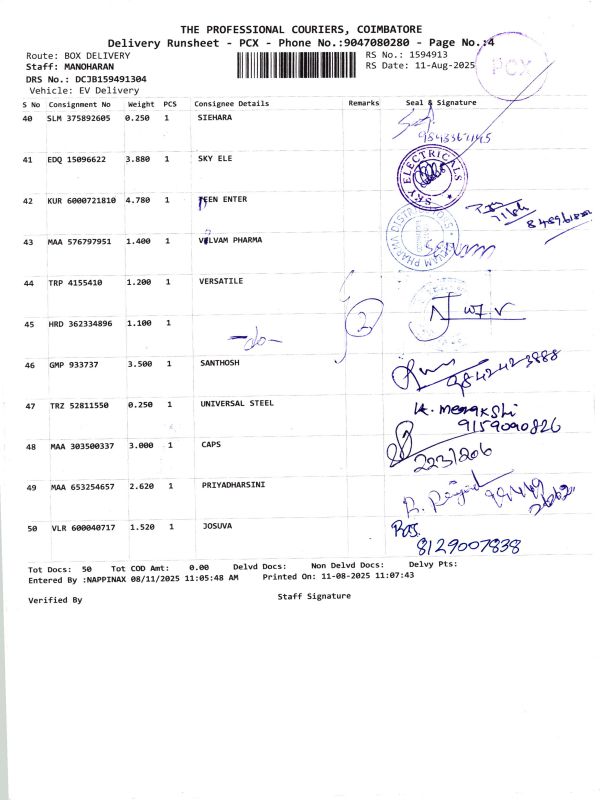 THE PROFESSIONAL COURIERS, COIMBATORE
Delivery Runsheet - PCX - Phone No.:9047080280 - Page No.:4
Route: BOX DELIVERY RS No.: 1594913
Staff: MANOHARAN RS Date: 11-Aug-2025
PCX
DRS No.: DCJB159491304
Vehicle: EV Delivery
S No Consignment No Weight PCS Consignee Details Remarks Seal & Signature
40 SLM 375892605 0.250 1 SIEHARA
41 EDQ 15096622 3.880 1 SKY ELE SKY ELECTRICALS
42 KUR 6000721810 4.780 1 TEEN ENTER
43 MAA 576797951 1.400 1 VELVAM PHARMA
44 TRP 4155410 1.200 1 VERSATILE
45 HRD 362334896 1.100 1 -do- 2
46 GMP 933737 3.500 1 SANTHOSH 9842423888
47 TRZ 52811550 0.250 1 UNIVERSAL STEEL K. Menakshi
9159090826
48 MAA 303500337 3.000 1 CAPS 2231206
49 MAA 653254657 2.620 1 PRIYADHARSINI
50 VLR 600040717 1.520 1 JOSUVA
8129007838
Tot Docs: 50 Tot COD Amt: 0.00 Delvd Docs: Non Delvd Docs: Delvy Pts:
Entered By :NAPPINAX 08/11/2025 11:05:48 AM Printed On: 11-08-2025 11:07:43
Verified By Staff Signature